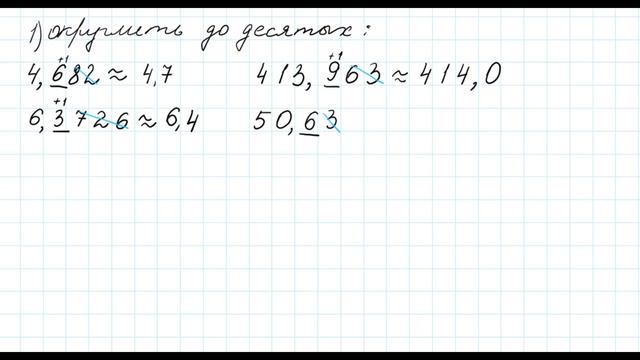 1) округлить до десятых:
+1 +1
4,682 ≈ 4,7 413,963 ≈ 414,0
+1
6,3726 ≈ 6,4 50,63